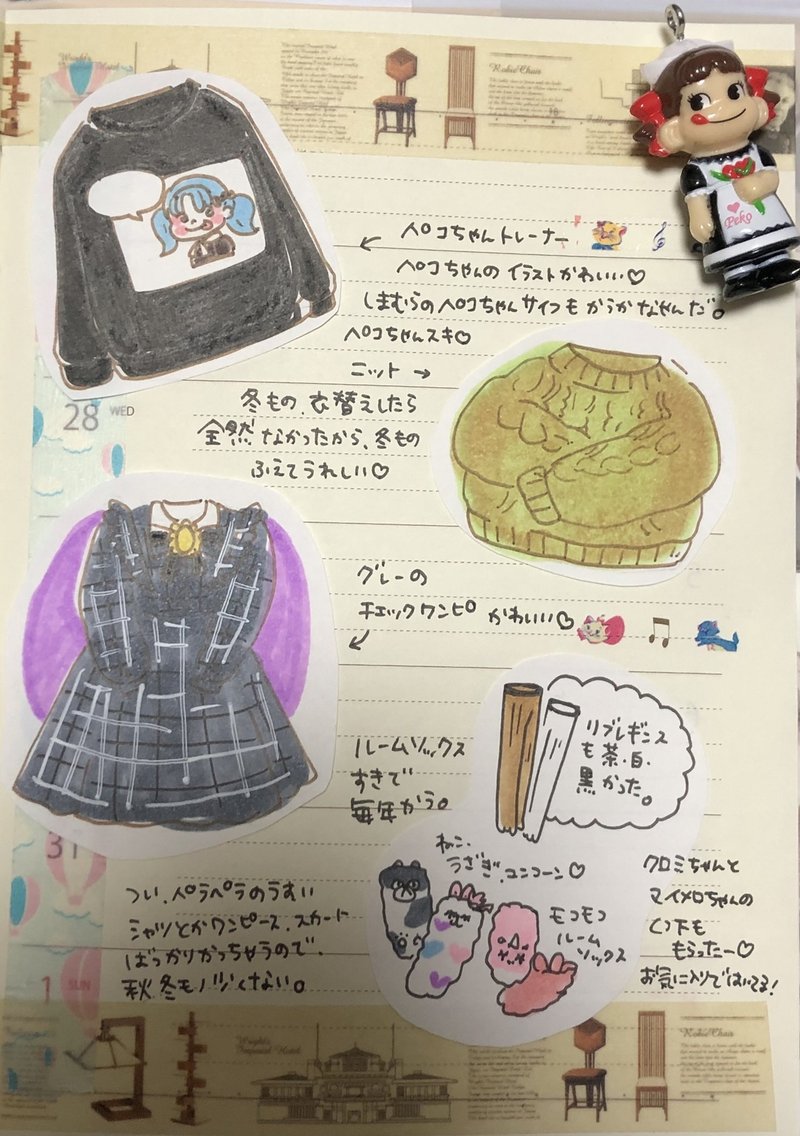 Robie Chair
ペコちゃんトレーナー
ペコちゃんの イラストかわいい♡
しまむらのペコちゃんサイフも かうか なやんだ。
ペコちゃんスキ♡
Peko
28 WED
ニット →
冬もの、衣替えしたら
全然 なかったから、冬もの
ふえてうれしい♡
グレーの
チェックワンピ かわいい♡
リブレギンス
も茶・白・
黒かった。
ルームソックス
すきで
毎年かう。
ねこ、
うさぎ、ユニコーン♡
モコモコ
ルーム
ソックス
クロミちゃんと
マイメロちゃんの
くつ下も
もらったー♡
お気に入りではいてる!
31
つい、ペラペラのうすい
シャツとかワンピース、スカート
ばっかりかっちゃうので、
秋冬モノ少くない。
1 SUN
Wright's
Imperial Hotel
Robie Chair